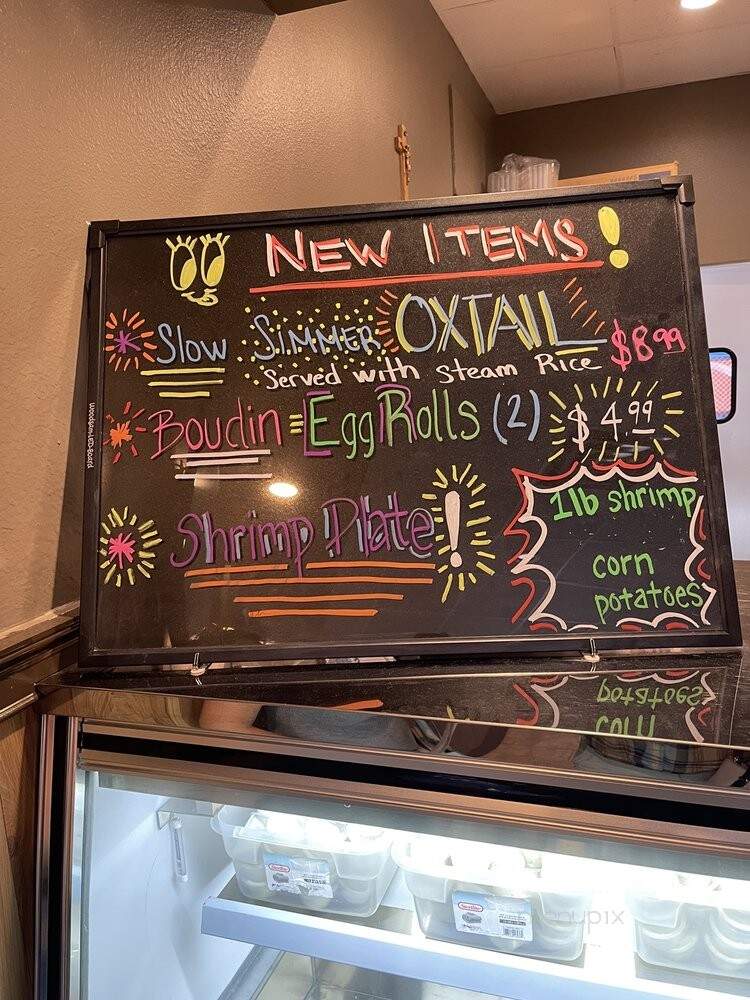 NEW ITEMS!
Slow Simmer OXTAIL $8.99
Served with Steam Rice
Boudin Egg Rolls (2) $4.99
Shrimp Plate!
1lb shrimp
corn
potatoes
Woodsam LED Board
potatoes
corn